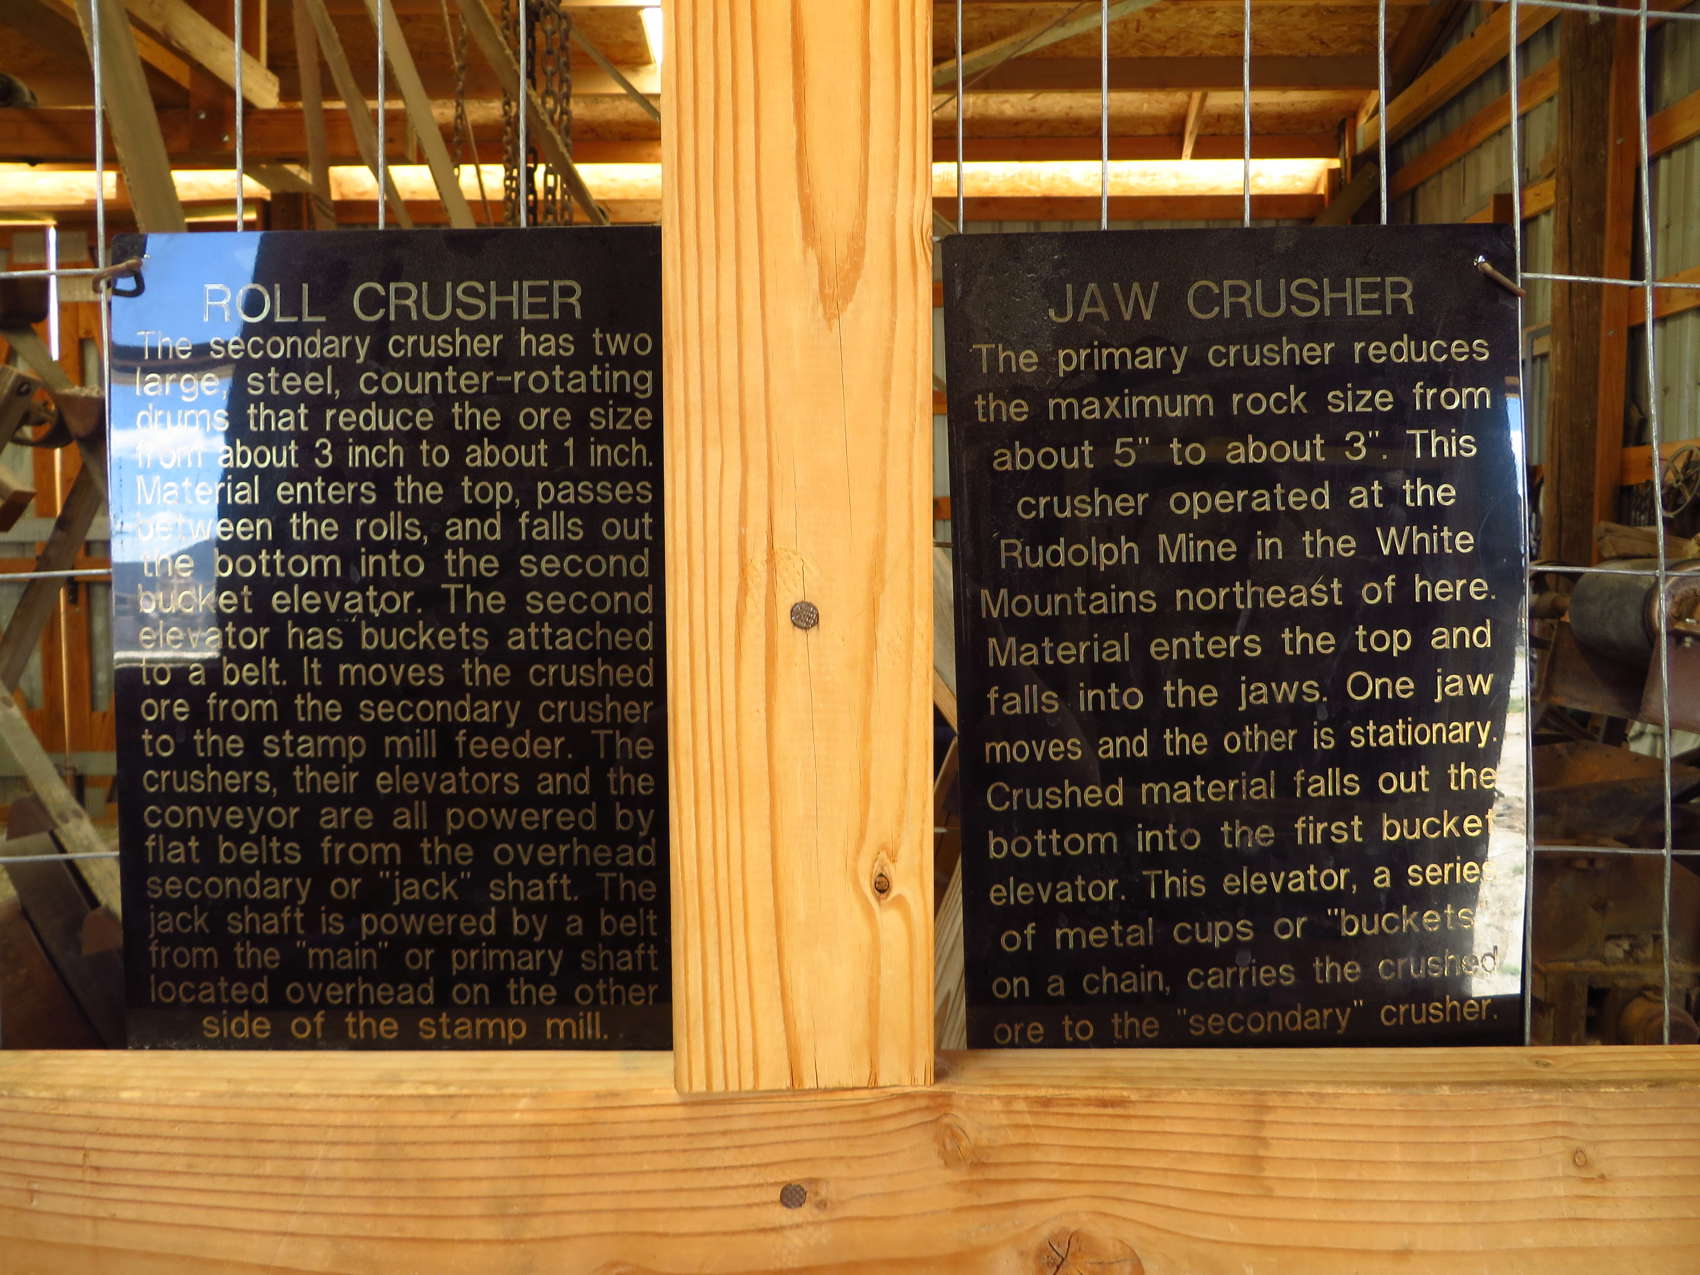 ROLL CRUSHER
The secondary crusher has two
large, steel, counter-rotating
drums that reduce the ore size
from about 3 inch to about 1 inch.
Material enters the top, passes
between the rolls, and falls out
the bottom into the second
bucket elevator. The second
elevator has buckets attached
to a belt. It moves the crushed
ore from the secondary crusher
to the stamp mill feeder. The
crushers, their elevators and the
conveyor are all powered by
flat belts from the overhead
secondary or "jack" shaft. The
jack shaft is powered by a belt
from the "main" or primary shaft
located overhead on the other
side of the stamp mill.
JAW CRUSHER
The primary crusher reduces
the maximum rock size from
about 5" to about 3". This
crusher operated at the
Rudolph Mine in the White
Mountains northeast of here.
Material enters the top and
falls into the jaws. One jaw
moves and the other is stationary.
Crushed material falls out the
bottom into the first bucket
elevator. This elevator, a series
of metal cups or "buckets"
on a chain, carries the crushed
ore to the "secondary" crusher.